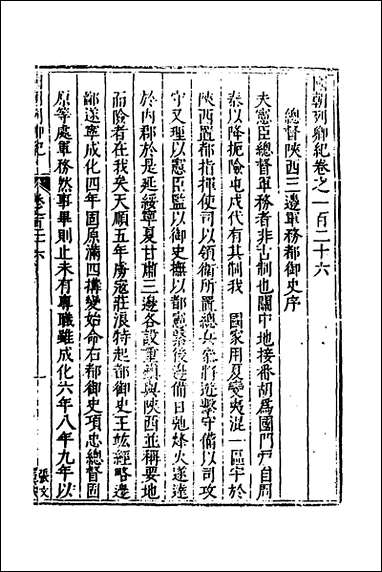 國朝列卿紀卷之一百二十六
總督陝西三邊軍務都御史序
夫憲臣總督軍務者非古制也關中地接番胡為國門戶自周
秦以降扼險屯戍代有其制我 國家用夏變夷混一區宇於
陝西置都指揮使司以領衛所爵總兵叅將遊擊守備以司攻
守又理以憲臣監以御史撫以都憲幕後邊備日弛烽火遂達
於內郡於是延綏寧夏甘肅三邊各設重鎮與陝西並稱要地
而險者在我矣天順五年虜寇莊浪特起都御史王竑經略邊
鄙遂寧成化四年固原滿四搆變始命右都御史項忠總督固
原等處軍務然事畢則止未有專職雖成化六年八年九年以
國朝列卿紀 卷之一百二十六 一
張文